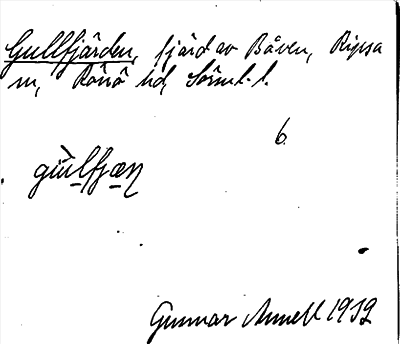 Gullfjärden, fjärd av Båven, Ripsa
sn, Rönö hd, Sörml. l.
6.
gùlfjæɳ
Gunnar Annell 1932